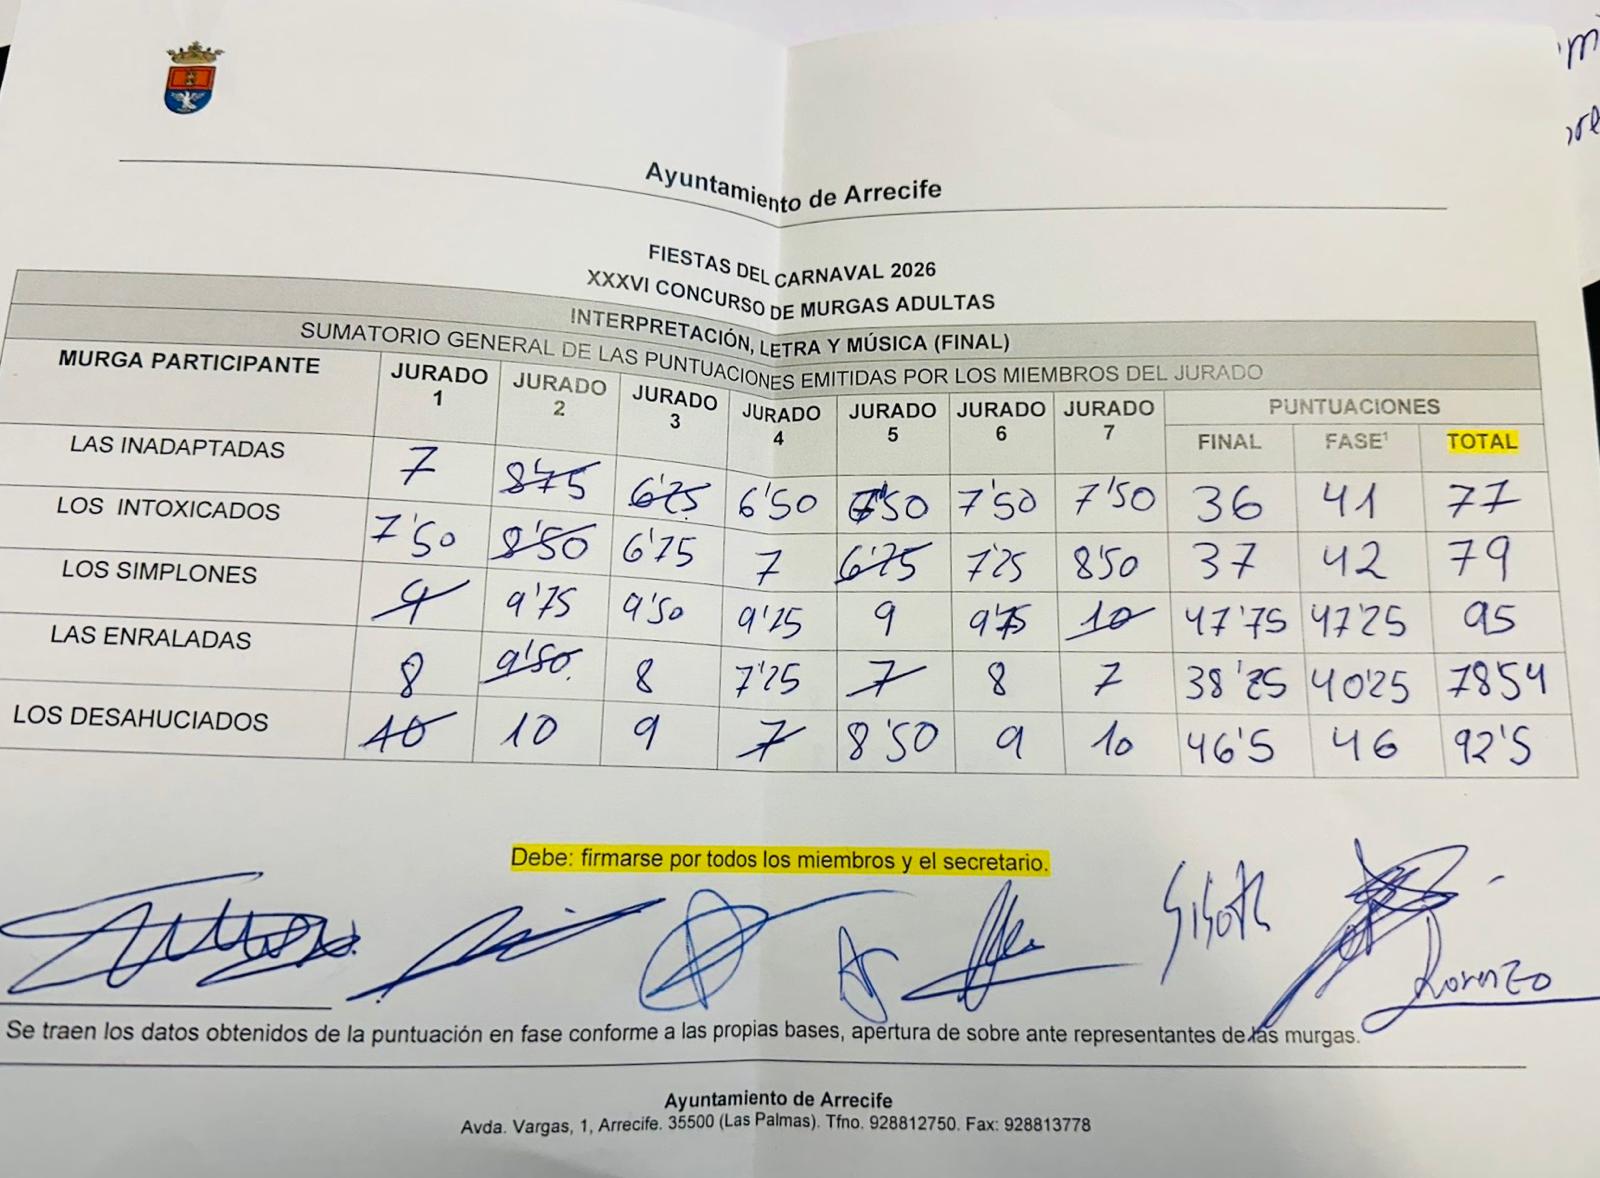 Ayuntamiento de Arrecife
FIESTAS DEL CARNAVAL 2026
XXXVI CONCURSO DE MURGAS ADULTAS
INTERPRETACIÓN, LETRA Y MÚSICA (FINAL)
SUMATORIO GENERAL DE LAS PUNTUACIONES EMITIDAS POR LOS MIEMBROS DEL JURADO
MURGA PARTICIPANTE JURADO 1 JURADO 2 JURADO 3 JURADO 4 JURADO 5 JURADO 6 JURADO 7 PUNTUACIONES
FINAL FASE¹ TOTAL
LAS INADAPTADAS 7 8'75 6'75 6'50 7'50 7'50 36 41 77
LOS INTOXICADOS 7'50 8'50 6'75 7 6'75 7'25 8'50 37 42 79
LOS SIMPLONES 9 9'75 9'50 9'25 9 10 47'75 47'25 95
LAS ENRALADAS 8 9'50 8 7'25 7 8 7 38'25 40'25 78'54
LOS DESAHUCIADOS 10 10 9 7 8'50 9 10 46'5 46 92'5
Debe: firmarse por todos los miembros y el secretario.
Lorenzo
Se traen los datos obtenidos de la puntuación en fase conforme a las propias bases, apertura de sobre ante representantes de las murgas.
Ayuntamiento de Arrecife
Avda. Vargas, 1, Arrecife. 35500 (Las Palmas). Tfno. 928812750. Fax: 928813778